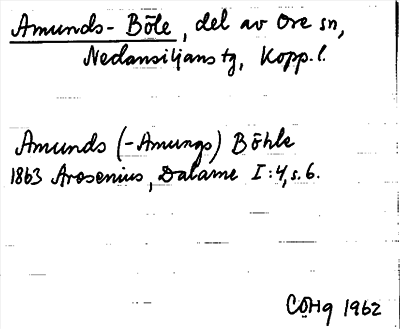 Amunds-Böle, del av Ore sn,
Nedansiljans tg, Kopp. l.
Amunds (-Amungs) Böhle
1863 Arosenius, Dalarne I:4, s. 6.
COHg 1962